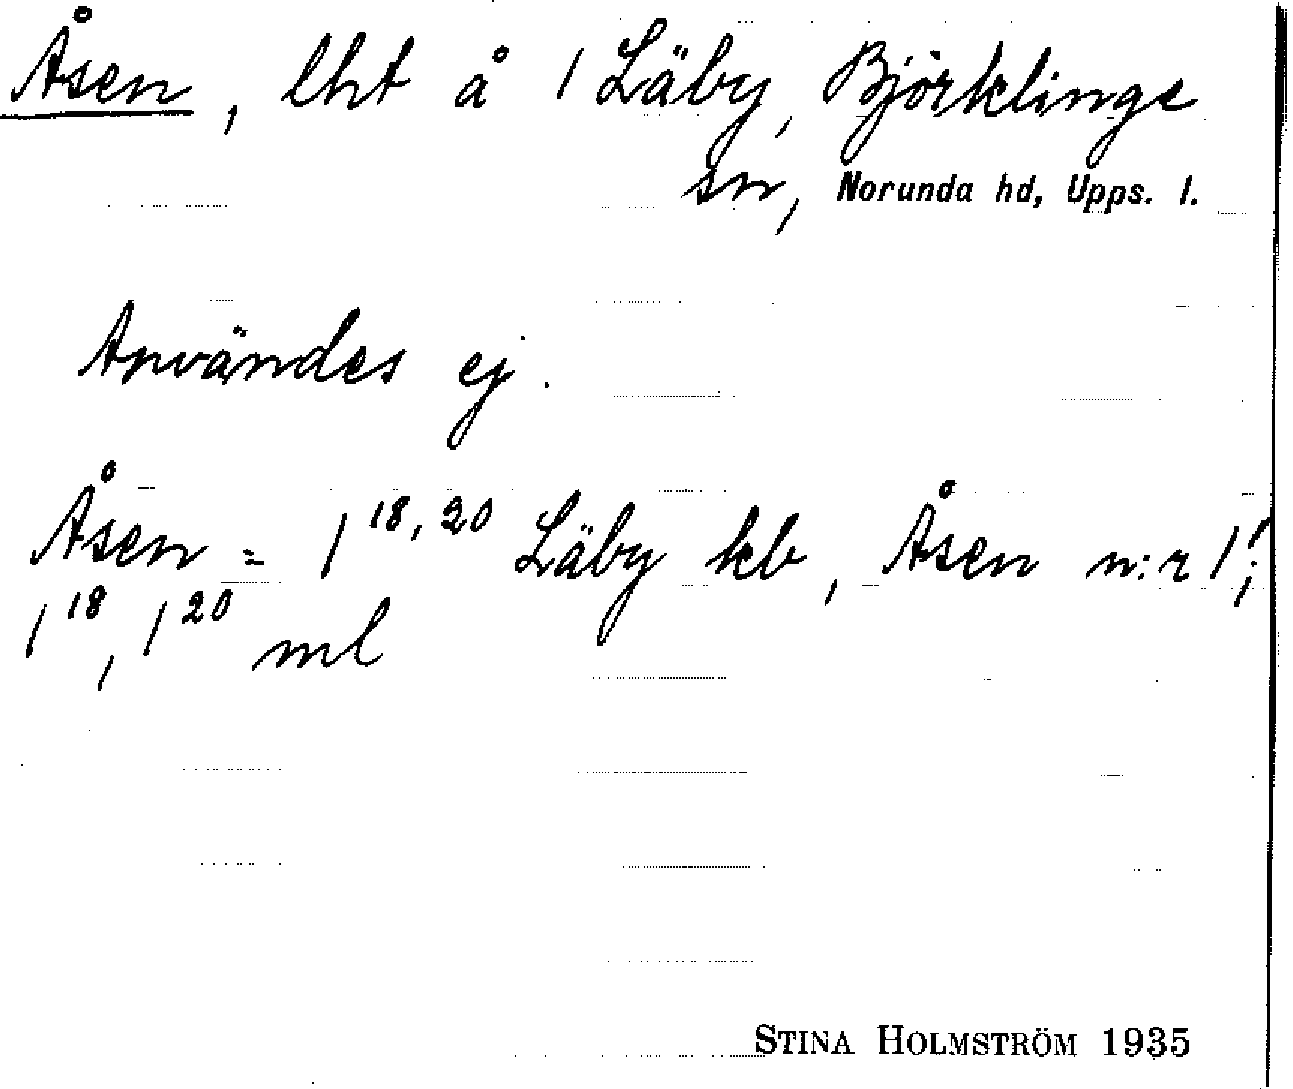 Åsen, lht å 1 Läby, Björklinge
sn, Norunda hd, Upps. l.
Användes ej.
Åsen = 1¹⁸,²⁰ Läby kb, Åsen n:r 1¹;
1¹⁸, 1²⁰ ml
STINA HOLMSTRÖM 1935